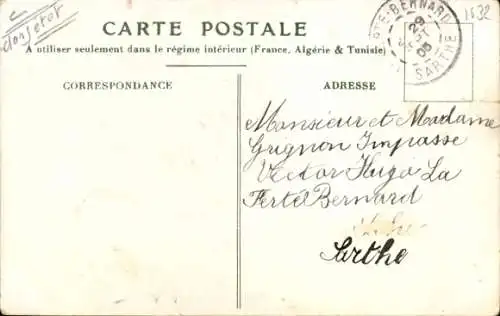 1632
CARTE POSTALE
A utiliser seulement dans le régime intérieur (France, Algérie & Tunisie)
CORRESPONDANCE
ADRESSE
TE-BERNARD
29
05
SARTHE
Monsieur et Madame
Grignon Impasse
Victor Hugo La
Ferté Bernard
Sarthe